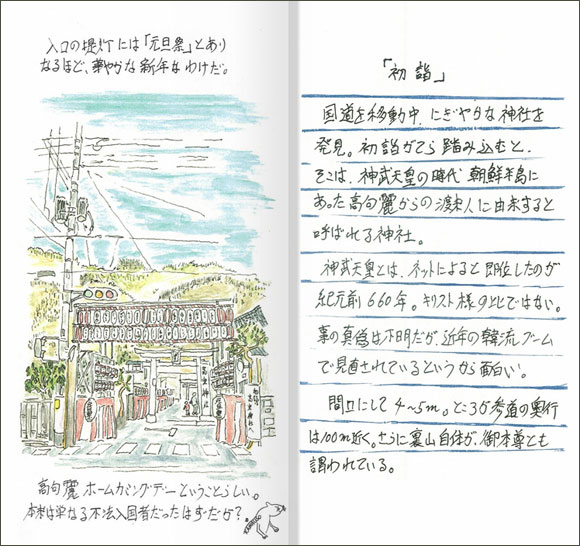 入口の提灯には「元旦祭」とあり
なるほど、華やかな新年なわけだ。
高句麗ホームカミングデーということらしい。
本来は単なる不法入国者だったはずだが?
「初詣」
国道を移動中、にぎやかな神社を
発見。初詣がてら踏み込むと、
そこは、神武天皇の時代 朝鮮半島に
あった高句麗からの渡来人に由来すると
呼ばれる神社。
神武天皇とは、ネットによると即位したのが
紀元前660年。キリスト様のとしではない。
事の真偽は不明だが、近年の韓流ブーム
で見直されているというから面白い。
間口にして4〜5m。ところが参道の奥行
は100m近く。さらに裏山自体が御本尊とも
謂われている。